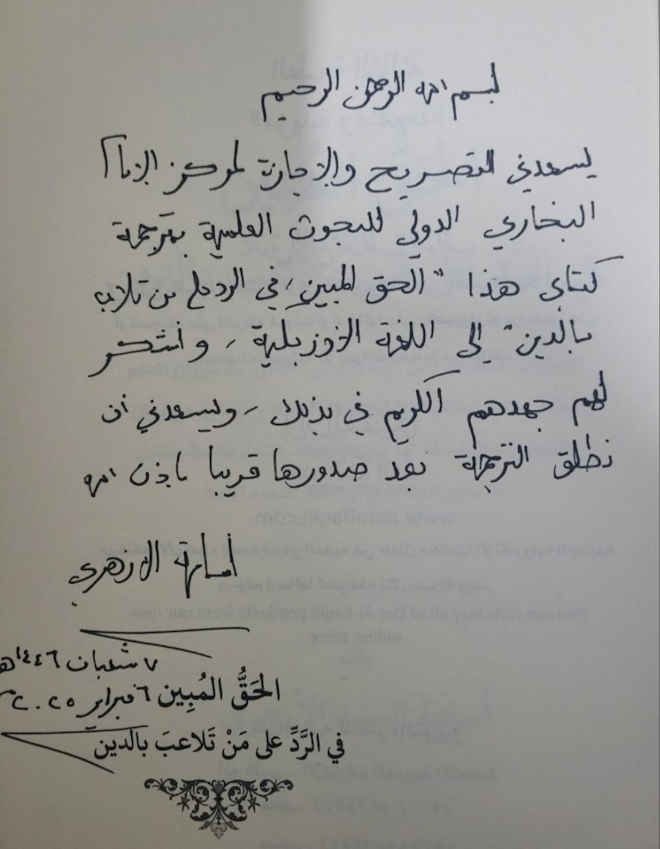 بسم الله الرحمن الرحيم
يسعدني التصريح والإجازة لمركز الإمام
البخاري الدولي للبحوث العلمية بترجمة
كتابي هذا "الحق المبين، في الرد على من تلاعب
بالدين" إلى اللغة الأوزبكية، وأشكر
لهم جهدهم الكريم في ذلك، ويسعدني أن
نطلق الترجمة بعد صدورها قريبا بإذن الله
أسامة الأزهري
٧ شعبان ١٤٤٦هـ
٦ فبراير ٢٠٢٥م
الحَقُّ المُبِين
في الرَّدِّ على مَنْ تَلاعبَ بالدين